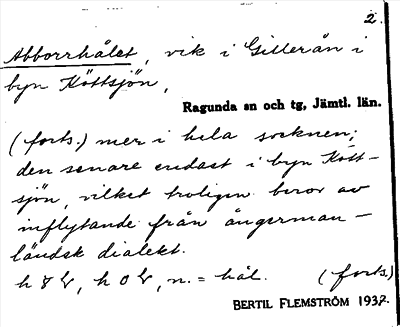 2.
Abborrhålet, vik i Gillerån i
byn Köttsjön,
Ragunda sn och tg, Jämtl. län.
(forts.) mer i hela socknen;
den senare endast i byn Kött-
sjön, vilket troligen beror av
inflytande från ångerman-
ländsk dialekt.
h, h, n. = hål. (forts.)
BERTIL FLEMSTRÖM 1937.